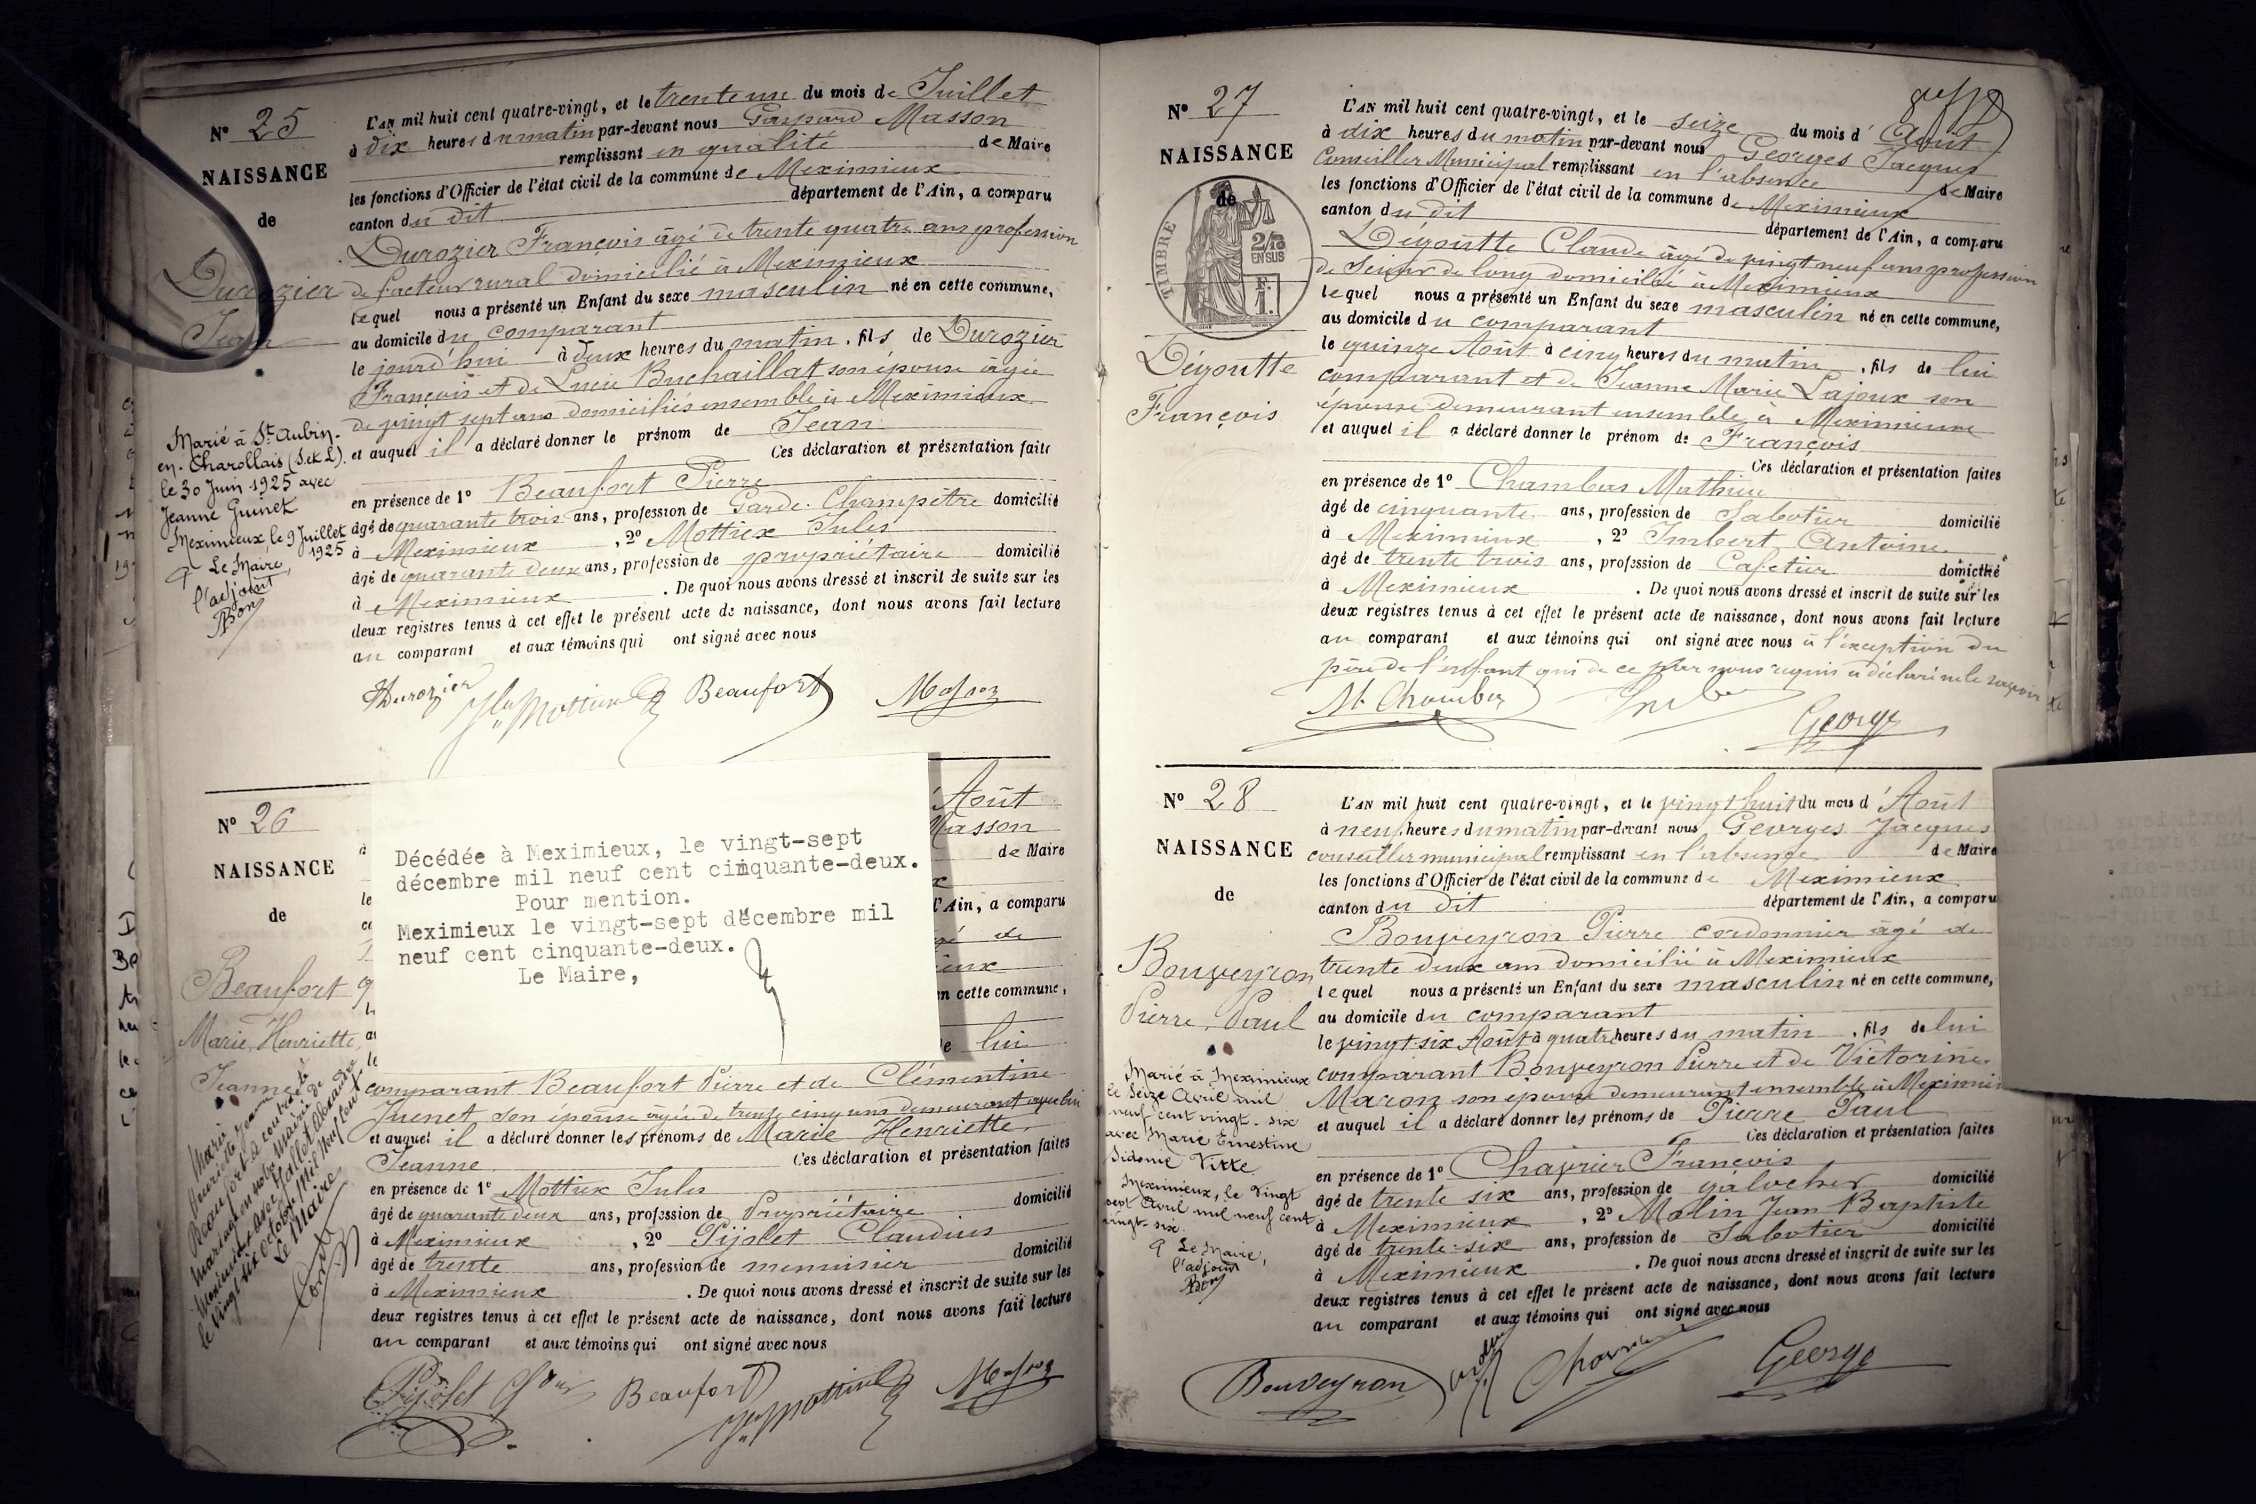 N° 25
NAISSANCE
de
Durozier
Jean
Marié à St Aubin-
en-Charollais (S.et L).
le 30 Juin 1925 avec
Jeanne Guinet
Meximieux, le 9 Juillet
1925
Le Maire,
l'adjoint
Bon
L'AN mil huit cent quatre-vingt, et le trente un du mois de Juillet
à dix heures du matin par-devant nous Gaspard Masson
remplissant en qualité de Maire
les fonctions d'Officier de l'état civil de la commune de Meximieux
canton du dit département de l'Ain, a comparu
Durozier François âgé de trente quatre ans profession
de facteur rural domicilié à Meximieux
lequel nous a présenté un Enfant du sexe masculin né en cette commune,
au domicile du comparant
le jourd'hui à deux heures du matin, fils de Durozier
François et de Lucie Buchaillat son épouse âgée
de vingt sept ans domiciliés ensemble à Meximieux
et auquel il a déclaré donner le prénom de Jean
Ces déclaration et présentation faite
en présence de 1° Beaufort Pierre
âgé de quarante trois ans, profession de Garde-Champêtre domicilié
à Meximieux, 2° Mottiex Jules
âgé de quarante deux ans, profession de propriétaire domicilié
à Meximieux. De quoi nous avons dressé et inscrit de suite sur les
deux registres tenus à cet effet le présent acte de naissance, dont nous avons fait lecture
au comparant et aux témoins qui ont signé avec nous
Durozier Beaufort Masson
N° 26
NAISSANCE
de
Beaufort
Marie Henriette
Jeanne
Août
Masson
de Maire
l'Ain, a comparu
âgé de
en cette commune,
de lui
Décédée à Meximieux, le vingt-sept
décembre mil neuf cent cinquante-deux.
Pour mention.
Meximieux le vingt-sept décembre mil
neuf cent cinquante-deux.
Le Maire,
comparant Beaufort Pierre et de Clémentine
Juenet son épouse âgée de trente cinq ans demeurant avec lui
et auquel il a déclaré donner les prénoms de Marie Henriette
Jeanne Ces déclaration et présentation faites
en présence de 1° Mottiex Jules
âgé de quarante deux ans, profession de Propriétaire domicilié
à Meximieux, 2° Pijolet Claudius
âgé de trente ans, profession de menuisier domicilié
à Meximieux. De quoi nous avons dressé et inscrit de suite sur les
deux registres tenus à cet effet le présent acte de naissance, dont nous avons fait lecture
au comparant et aux témoins qui ont signé avec nous
Pijolet Beaufort Masson
N° 27
NAISSANCE
de
TIMBRE
2/10
EN SUS
Dégoutte
François
L'AN mil huit cent quatre-vingt, et le seize du mois d'Août
à dix heures du matin par-devant nous Georges Jacques
Conseiller Municipal remplissant en l'absence de Maire
les fonctions d'Officier de l'état civil de la commune de Meximieux
canton du dit département de l'Ain, a comparu
Dégoutte Claude âgé de vingt neuf ans profession
de Scieur de long domicilié à Meximieux
lequel nous a présenté un Enfant du sexe masculin né en cette commune,
au domicile du comparant
le quinze Août à cinq heures du matin, fils de lui
comparant et de Jeanne Marie Lajoux son
épouse demeurant ensemble à Meximieux
et auquel il a déclaré donner le prénom de François
Ces déclaration et présentation faites
en présence de 1° Chambas Mathieu
âgé de cinquante ans, profession de Sabotier domicilié
à Meximieux, 2° Imbert Antoine
âgé de trente trois ans, profession de Cafetier domicilié
à Meximieux. De quoi nous avons dressé et inscrit de suite sur les
deux registres tenus à cet effet le présent acte de naissance, dont nous avons fait lecture
au comparant et aux témoins qui ont signé avec nous à l'exception du
père de l'enfant qui de ce par nous requis a déclaré ne le savoir
George
N° 28
NAISSANCE
de
Bouveyron
Pierre Paul
Marié à Meximieux
le Seize Avril mil
neuf cent vingt-six
avec Marie Ernestine
Sidonie Vitte
Meximieux, le Vingt
sept Avril mil neuf cent
vingt-six.
Le Maire,
l'adjoint
Bon
L'AN mil huit cent quatre-vingt, et le vingt huit du mois d'Août
à neuf heures du matin par-devant nous Georges Jacques
conseiller municipal remplissant en l'absence de Maire
les fonctions d'Officier de l'état civil de la commune de Meximieux
canton du dit département de l'Ain, a comparu
Bouveyron Pierre cordonnier âgé de
trente deux ans domicilié à Meximieux
lequel nous a présenté un Enfant du sexe masculin né en cette commune,
au domicile du comparant
le vingt-six Août à quatre heures du matin, fils de lui
comparant Bouveyron Pierre et de Victorine
Maron son épouse demeurant ensemble à Meximieux
et auquel il a déclaré donner les prénoms de Pierre Paul
Ces déclaration et présentation faites
en présence de 1° Chavrier François
âgé de trente six ans, profession de galocher domicilié
à Meximieux, 2° Molin Jean Baptiste
âgé de trente-six ans, profession de Sabotier domicilié
à Meximieux. De quoi nous avons dressé et inscrit de suite sur les
deux registres tenus à cet effet le présent acte de naissance, dont nous avons fait lecture
au comparant et aux témoins qui ont signé avec nous
Bouveyron George